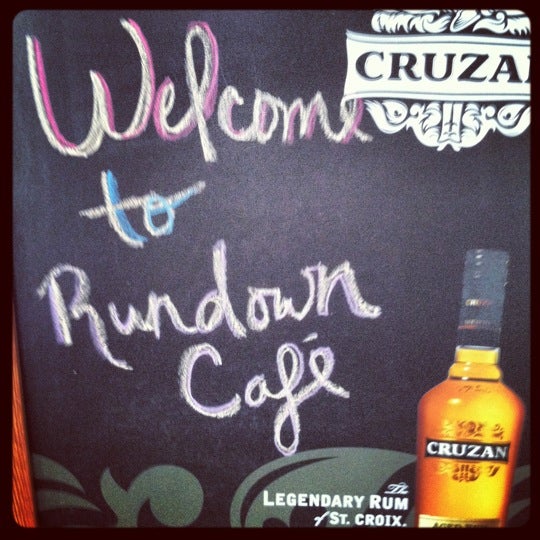 CRUZAN
Welcome
to
Rundown
Café
CRUZAN
The
LEGENDARY RUM
of ST. CROIX.